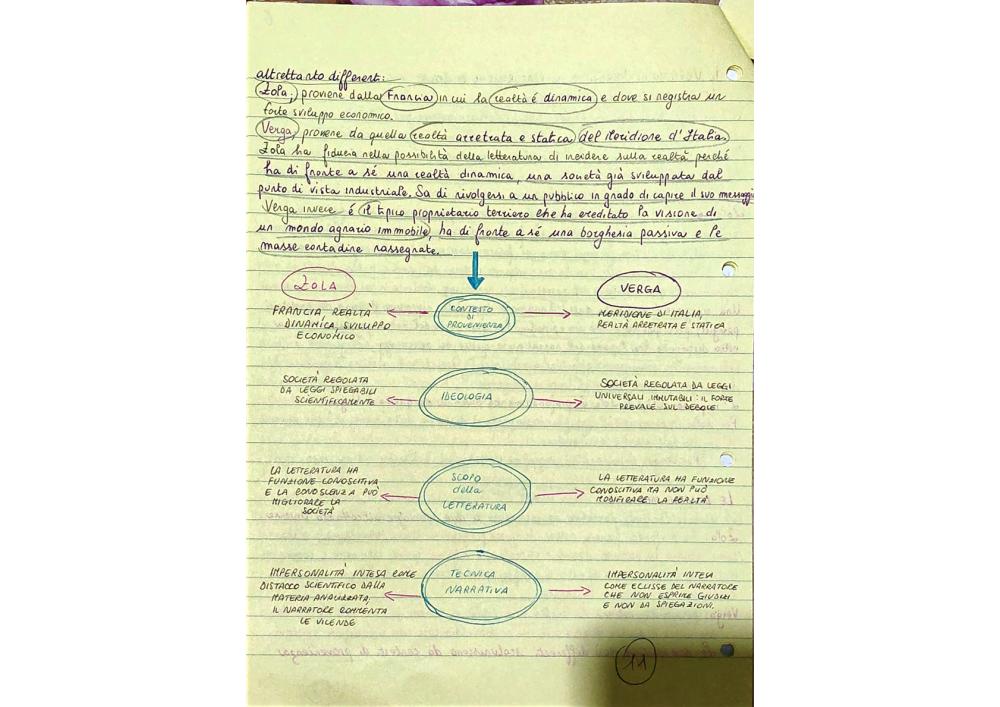 altrettanto different:
Zola; proviene dalla Francia in cui la realtà é dinamica e dove si registra un
forte sviluppo economico.
Verga, proviene da quella realtà arretrata e statica del Meridione d'Italia.
Zola ha fiducia nella possibilità della letteratura di incidere sulla realtà perché
ha di fronte a sé una realtà dinamica, una società già sviluppata dal
punto di vista industriale. Sa di rivolgersi a un pubblico in grado di capire il suo messaggio
Verga invece é il tipico proprietario terriero che ha ereditato la visione di
un mondo agrario immobile, ha di fronte a sé una borghesia passiva e le
masse contadine rassegnate.
ZOLA
VERGA
CONTESTO
DI
PROVENIENZA
FRANCIA REALTÀ
DINAMICA, SVILUPPO
ECONOMICO
MERIDIONE DI ITALIA,
REALTÀ ARRETRATA E STATICA
SOCIETÀ REGOLATA
DA LEGGI SPIEGABILI
SCIENTIFICAMENTE
IDEOLOGIA
SOCIETÀ REGOLATA DA LEGGI
UNIVERSALI IMMUTABILI: IL FORTE
PREVALE SUL DEBOLE
LA LETTERATURA HA
FUNZIONE CONOSCITIVA
E LA CONOSCENZA PUÒ
MIGLIORARE LA
SOCIETÀ
SCOPO
della
LETTERATURA
LA LETTERATURA HA FUNZIONE
CONOSCITIVA MA NON PUÒ
MODIFICARE LA REALTÀ
IMPERSONALITÀ INTESA COME
DISTACCO SCIENTIFICO DALLA
MATERIA ANALIZZATA,
IL NARRATORE COMMENTA
LE VICENDE
TECNICA
NARRATIVA
IMPERSONALITÀ INTESA
COME ECLISSE DEL NARRATORE
CHE NON ESPRIME GIUDIZI
E NON DA SPIEGAZIONI.
11